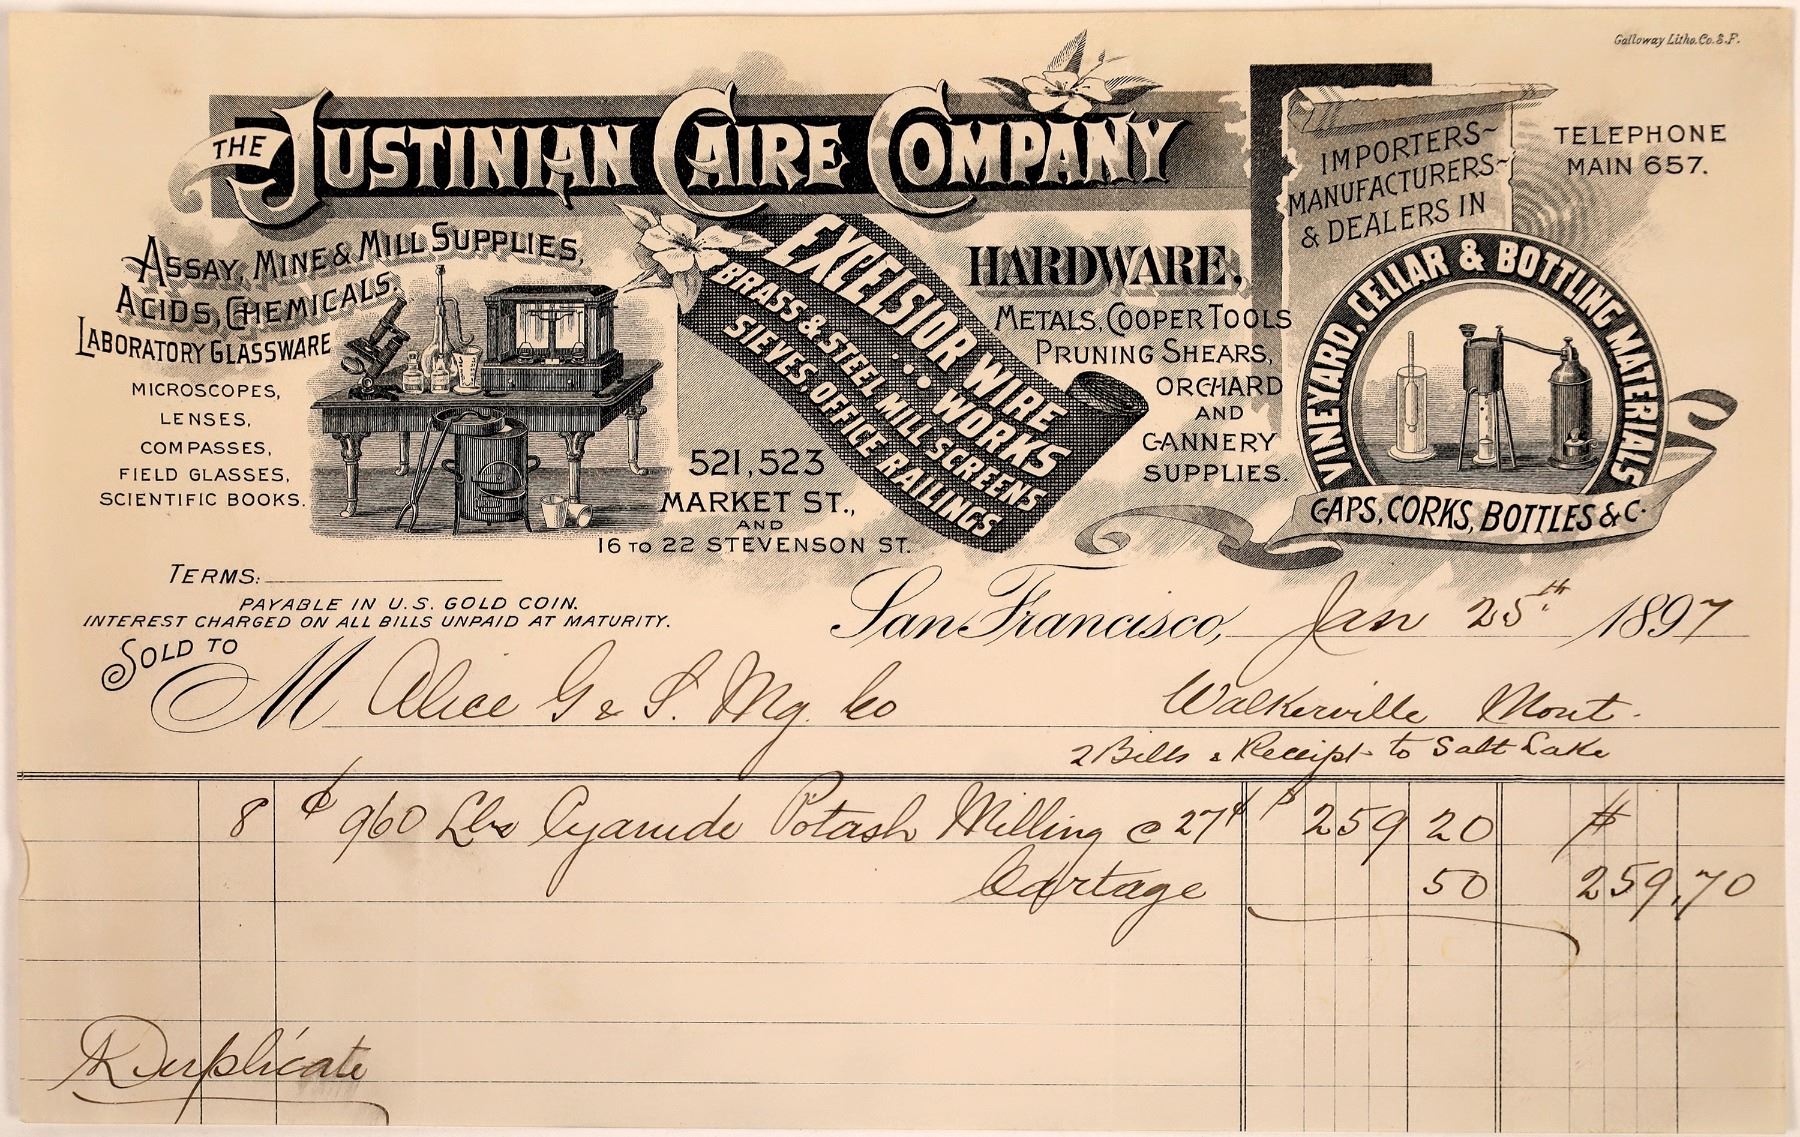 Galloway Litho. Co. S.F.
THE JUSTINIAN CAIRE COMPANY
ASSAY, MINE & MILL SUPPLIES,
ACIDS, CHEMICALS.
LABORATORY GLASSWARE
MICROSCOPES,
LENSES,
COMPASSES,
FIELD GLASSES,
SCIENTIFIC BOOKS.
EXCELSIOR WIRE WORKS
BRASS & STEEL MILL SCREENS
SIEVES, OFFICE RAILINGS
521, 523
MARKET ST.,
AND
16 TO 22 STEVENSON ST.
HARDWARE,
METALS, COOPER TOOLS
PRUNING SHEARS,
ORCHARD
AND
CANNERY
SUPPLIES.
IMPORTERS~
MANUFACTURERS~
& DEALERS IN
VINEYARD, CELLAR & BOTTLING MATERIALS
CAPS, CORKS, BOTTLES & C.
TELEPHONE
MAIN 657.
TERMS:
PAYABLE IN U.S. GOLD COIN.
INTEREST CHARGED ON ALL BILLS UNPAID AT MATURITY.
San Francisco, Jan 25th 1897
SOLD TO
M Alice G & S. Mg. Co Walkerville Mont.
2 Bills & Receipt to Salt Lake
8 ¢ 960 Lbs Cyanide Potash Milling c 27¢ $ 259 20 $
Cartage 50 259.70
Duplicate